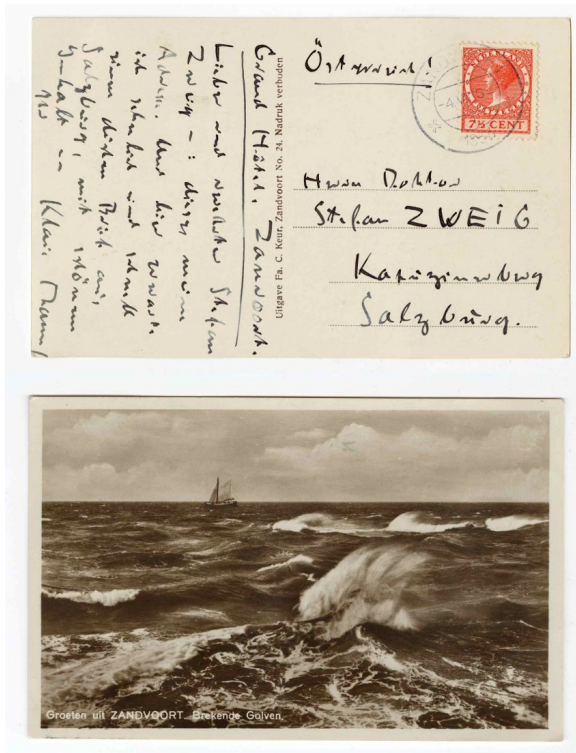 Grand Hotel. Zandvoort.
Lieber und verehrter Stefan
Zweig - : dieses meine
Adresse. Und hier erwarte
ich sehnlich und
Salzburg, mit schönem
Klaus Mann
Uitgave Fa. C. Keur, Zandvoort No. 24. Nadruk verboden
Österreich!
NEDERLAND
7½ CENT
Herrn Doktor
Stefan ZWEIG
Kapuzinerberg
Salzburg.
Groeten uit ZANDVOORT. Brekende Golven.